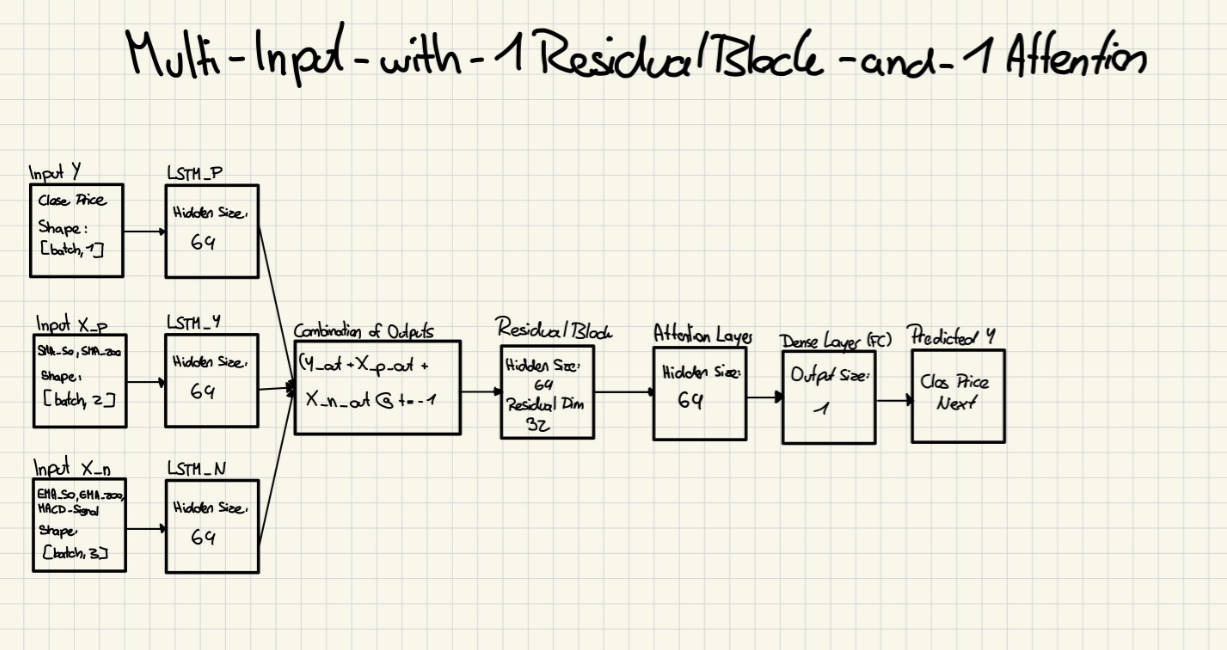 Multi-Input-with-1 Residual Block-and-1 Attention
Input Y
Close Price
Shape:
[batch, 1]
LSTM_P
Hidden Size:
64
Input X_p
SMA_50, SMA_200
Shape:
[batch, 2]
LSTM_Y
Hidden Size:
64
Input X_n
EMA_50, EMA_200,
MACD-Signal
Shape:
[batch, 3]
LSTM_N
Hidden Size:
64
Combination of Outputs
(Y_out + X_p_out +
X_n_out @ t=-1
Residual Block
Hidden Size:
64
Residual Dim
32
Attention Layer
Hidden Size:
64
Dense Layer (FC)
Output Size:
1
Predicted Y
Clos Price
Next